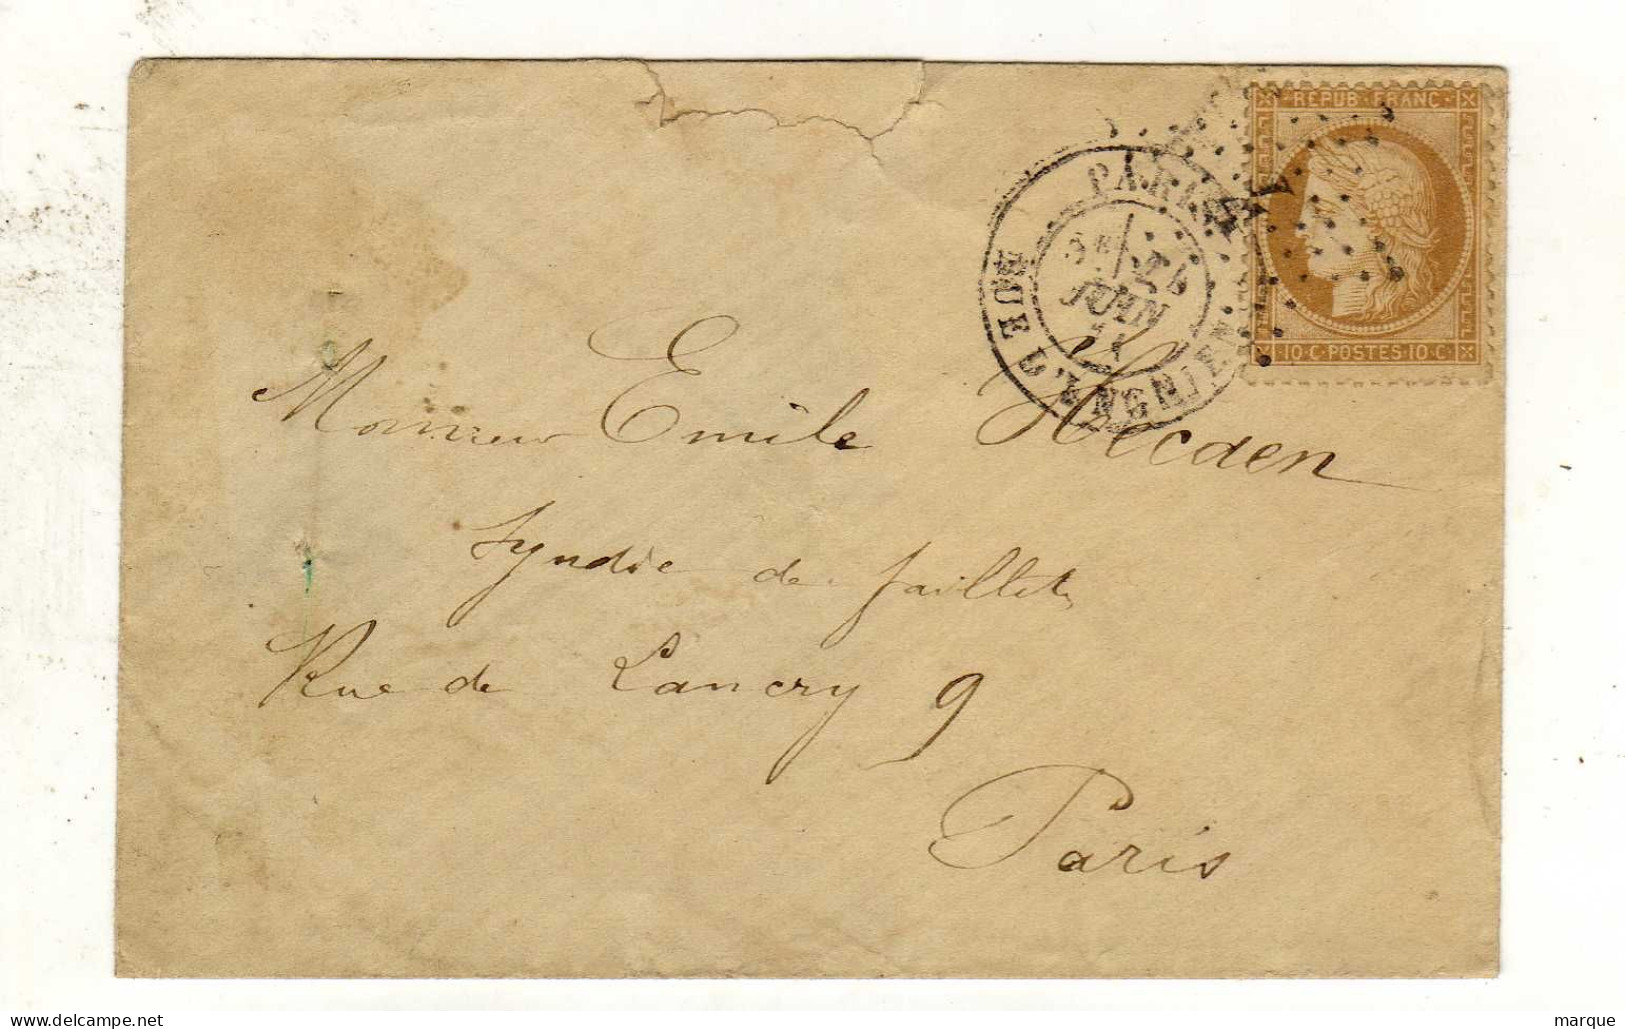 REPUB · FRANC
10 · C · POSTES · 10 · C
PARIS
RUE D'ENGHIEN
3E
24
JUIN
71
Monsieur Emile Hecaen
Syndic de faillites
Rue de Lancry 9
Paris
www.delcampe.net
marque